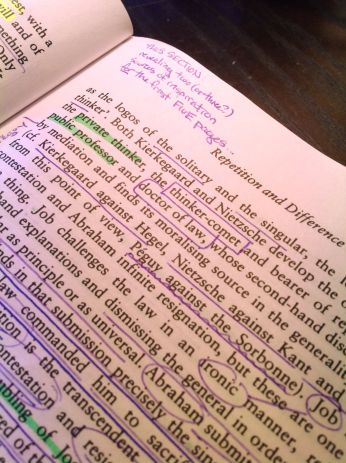 est, with a
will and of
mething
Only
THIS SECTION
revealing two (or three?)
sources of inspiration
for the first FIVE pages.
Repetition and Difference
as the logos of the solitary and the singular, the
thinker'. Both Kierkegaard and Nietzsche develop the
the private thinker, the thinker-comet and bearer of
public professor and doctor of law, whose second-hand
by mediation and finds its moralising source in the
(cf. Kierkegaard against Hegel, Nietzsche against Kant and
from this point of view, Péguy against the Sorbonne). Job
contestation and Abraham infinite resignation, but these are one
thing. Job challenges the law in an ironic manner,
hand explanations and dismissing the general in order
as principle or as universal. Abraham
in that submission precisely the
law commanded him to
is the transcendent
contestation and